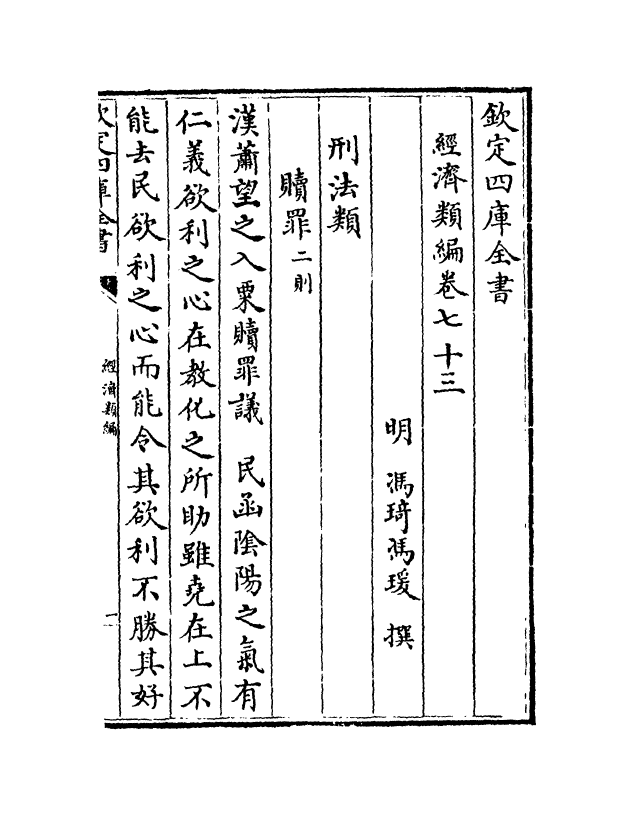 欽定四庫全書
經濟類編卷七十三
明 馮琦馮瑗 撰
刑法類
贖罪二則
漢蕭望之入粟贖罪議 民函陰陽之氣有
仁義欲利之心在教化之所助雖堯在上不
能去民欲利之心而能令其欲利不勝其好
欽定四庫全書
經濟類編
一